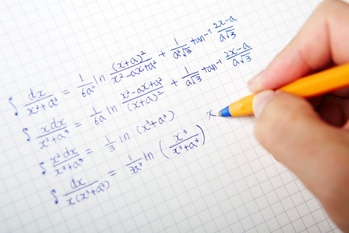 ∫ dx/(x³+a³) = 1/(6a²) ln (x+a)²/(x²-ax+a²) + 1/(a²√3) tan⁻¹ (2x-a)/(a√3)
∫ xdx/(x³+a³) = 1/(6a) ln (x²-ax+a²)/(x+a)² + 1/(a√3) tan⁻¹ (2x-a)/(a√3)
∫ x²dx/(x³+a³) = 1/3 ln (x³+a³)
∫ dx/(x(x³+a³)) = 1/(3a³) ln (x³/(x³+a³))